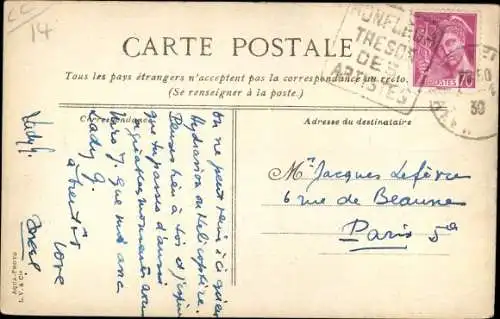 CC
14
HONFLEUR
TRESOR
DES
ARTISTES
POSTES
70
30
CARTE POSTALE
Tous les pays étrangers n'acceptent pas la correspondance au recto.
(Se renseigner à la poste.)
Correspondance
Adresse du destinataire
on ne peut venir ici qu'en
Hydravion ou Hélicoptère.
Pensez bien à toi et j'espère
que tu passes d'aussi
agréables moments avec
J. que moi avec
Lady J.
à bientôt
Love
Mr Jacques Lefèvre
6 rue de Beaune
Paris
AQUA-PHOTO
L. V. & Cie